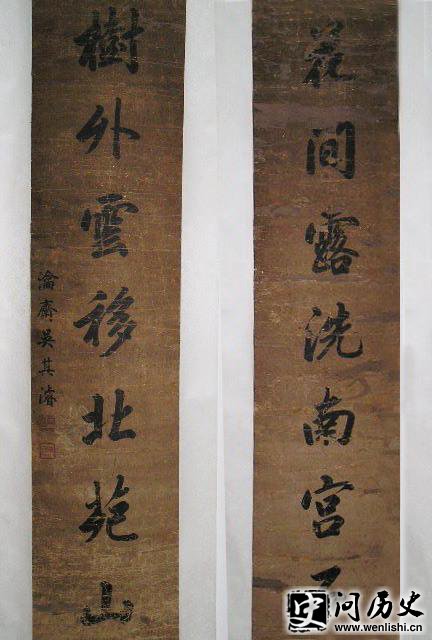 花間露洗南宮石
樹外雲移北苑山
瀹齋吳其濬
史问历史
www.wenlishi.cn